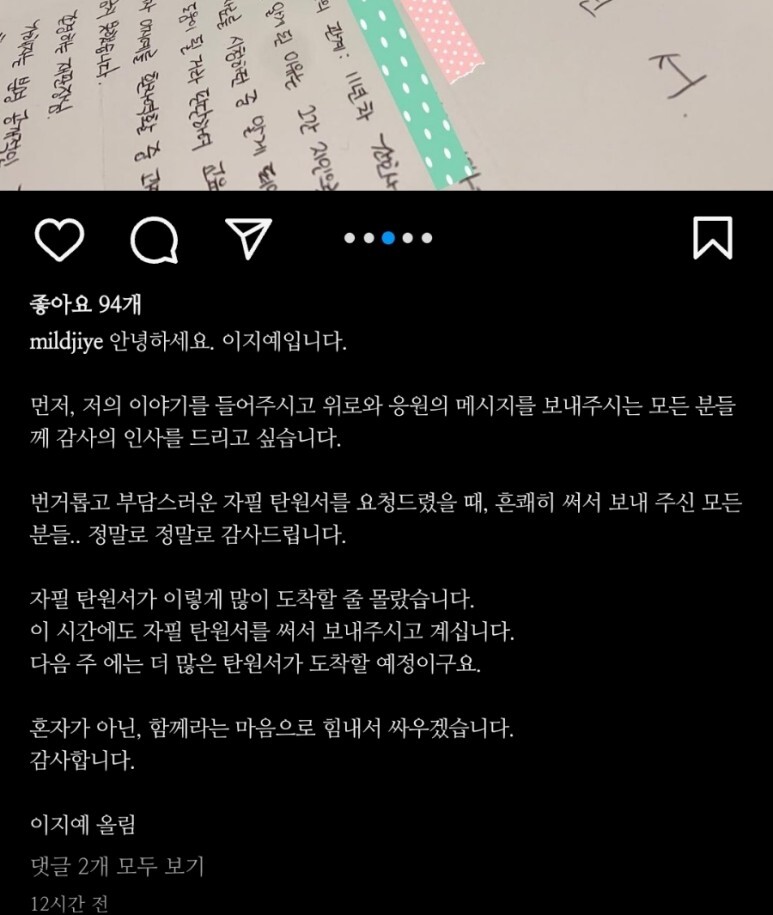 좋아요 94개
mildjiye 안녕하세요. 이지예입니다.
먼저, 저의 이야기를 들어주시고 위로와 응원의 메시지를 보내주시는 모든 분들
께 감사의 인사를 드리고 싶습니다.
번거롭고 부담스러운 자필 탄원서를 요청드렸을 때, 흔쾌히 써서 보내 주신 모든
분들.. 정말로 정말로 감사드립니다.
자필 탄원서가 이렇게 많이 도착할 줄 몰랐습니다.
이 시간에도 자필 탄원서를 써서 보내주시고 계십니다.
다음 주 에는 더 많은 탄원서가 도착할 예정이구요.
혼자가 아닌, 함께라는 마음으로 힘내서 싸우겠습니다.
감사합니다.
이지예 올림
댓글 2개 모두 보기
12시간 전